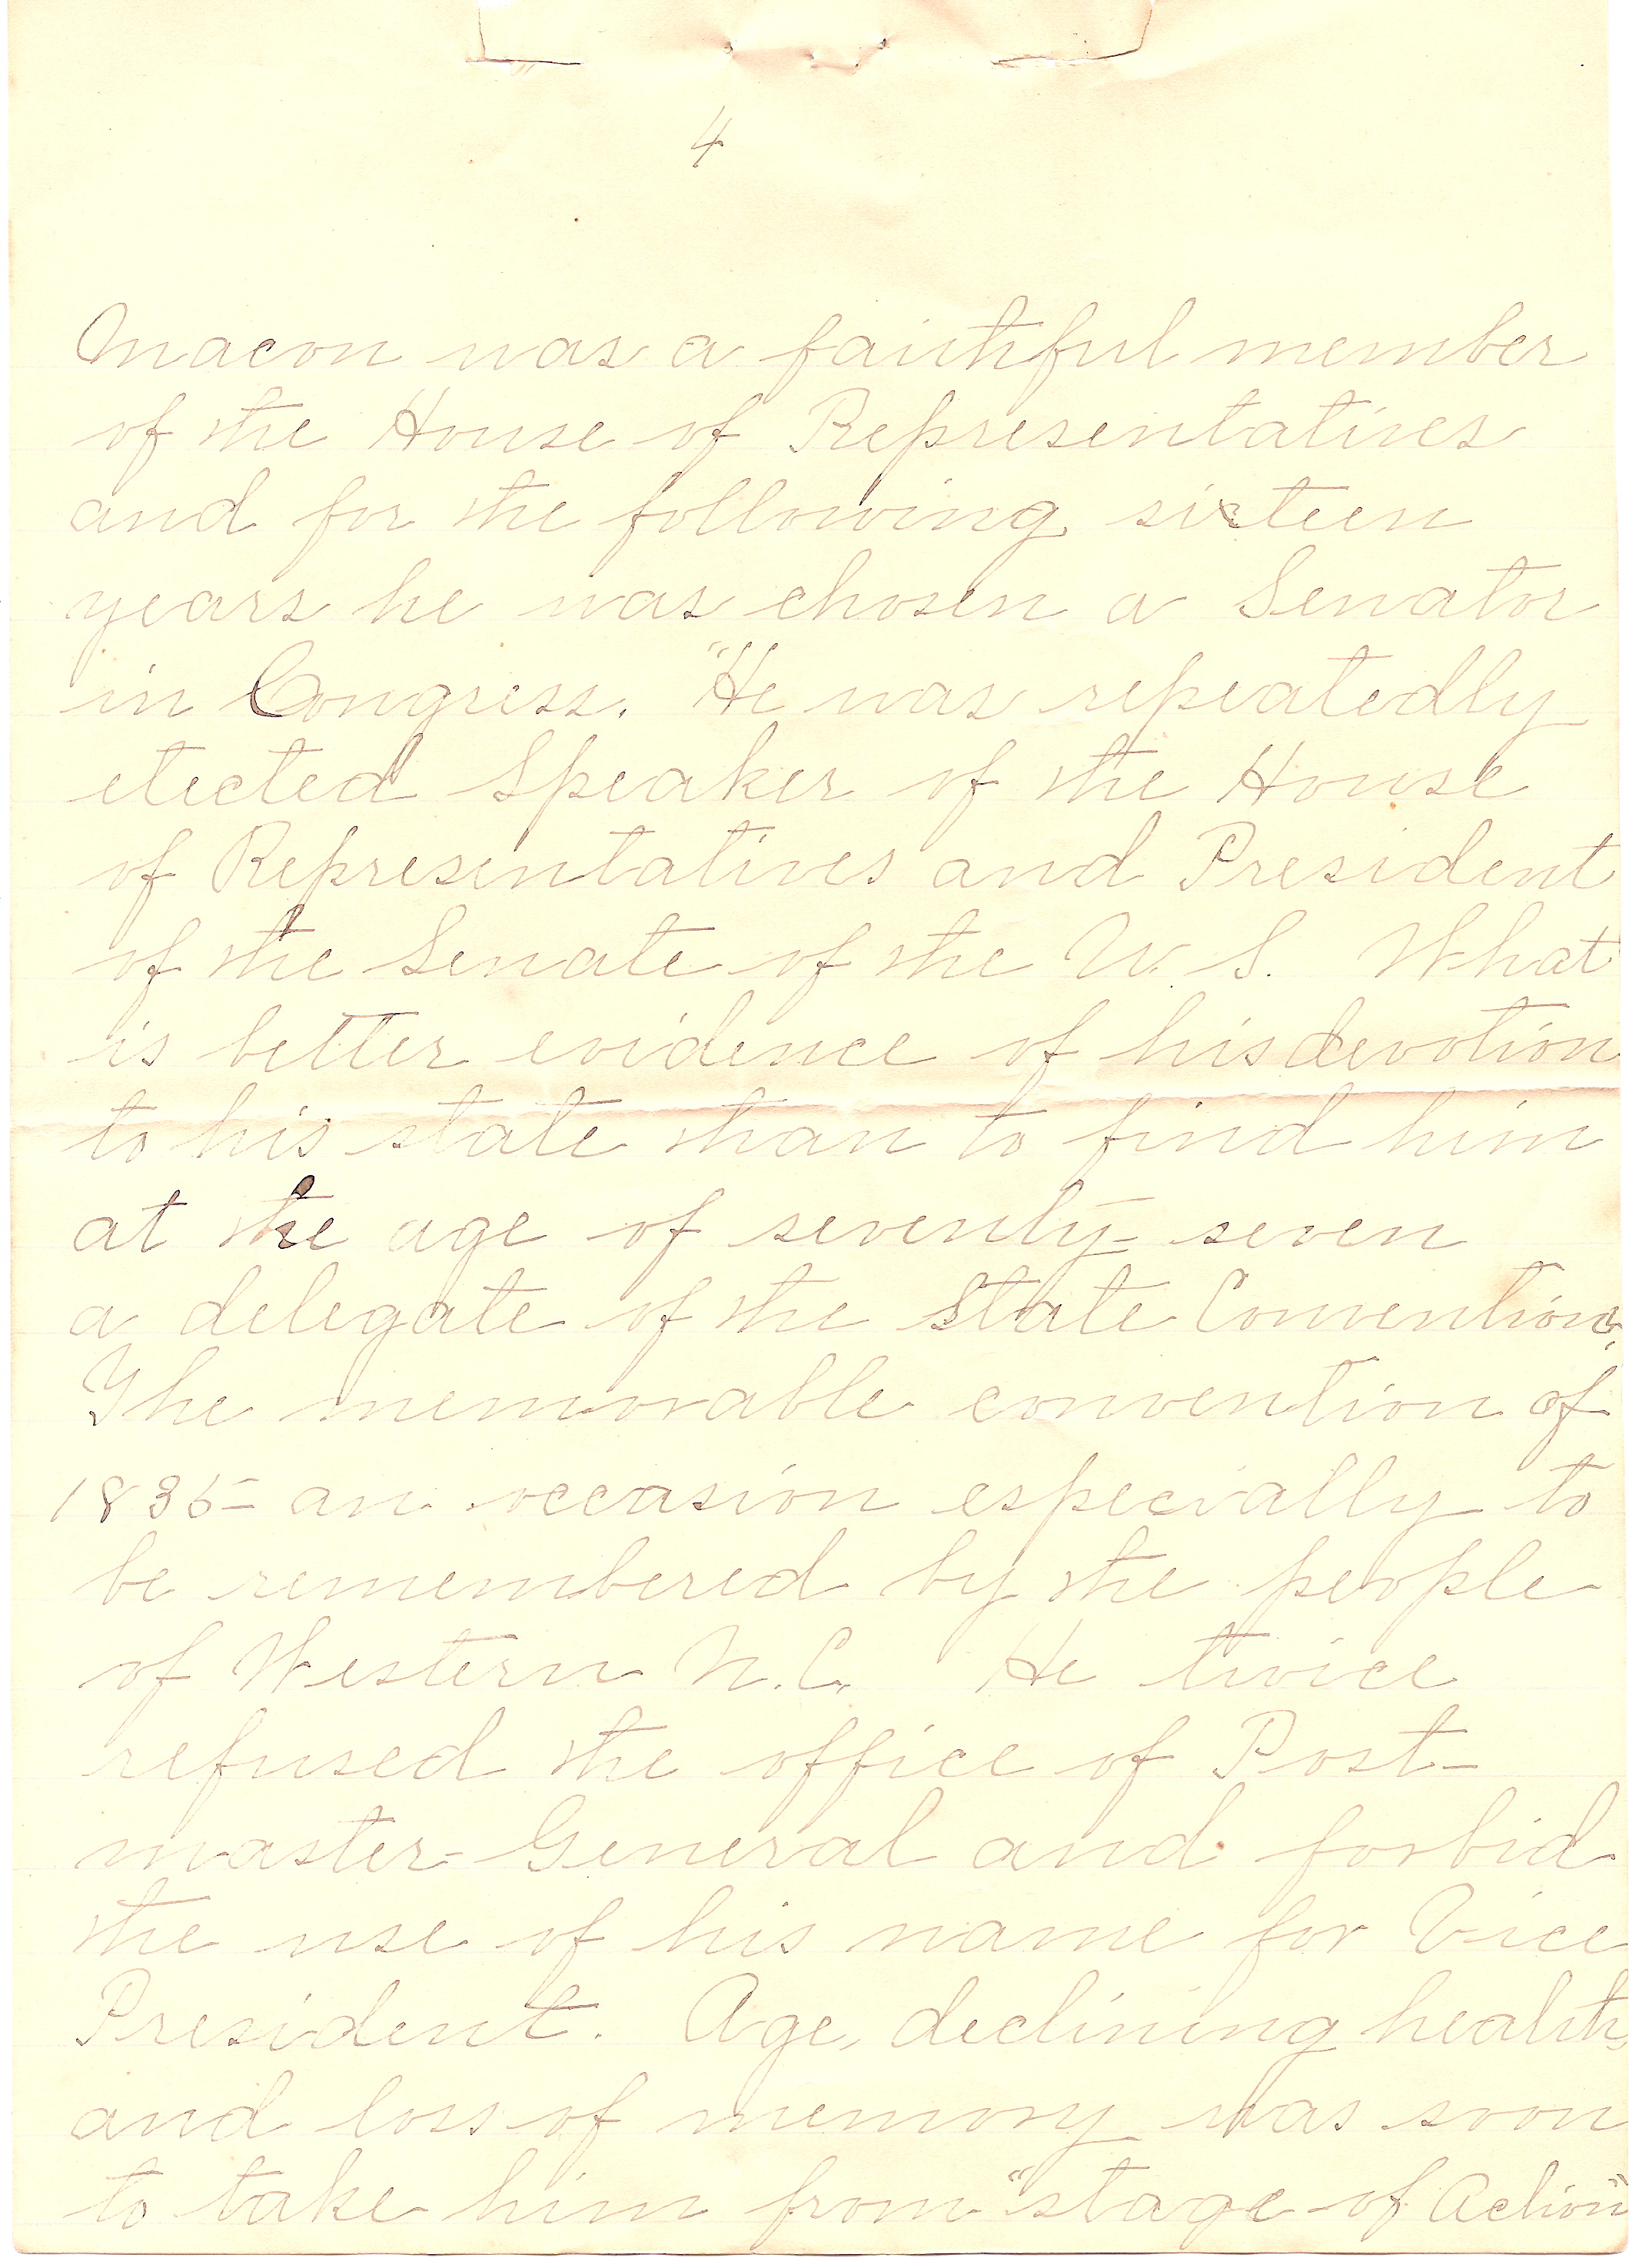 4
Macon was a faithful member
of the House of Representatives
and for the following sixteen
years he was chosen a Senator
in Congress. "He was repeatedly
elected Speaker of the House
of Representatives and President
of the Senate of the U. S. What
is better evidence of his devotion
to his state than to find him
at the age of seventy-seven
a delegate of the State Convention.
The memorable convention of
1835- an occasion especially to
be remembered by the people
of Western N.C. He twice
refused the office of Post-
master-General and forbid
the use of his name for Vice
President. Age, declining health,
and loss of memory was soon
to take him from "stage of Action"